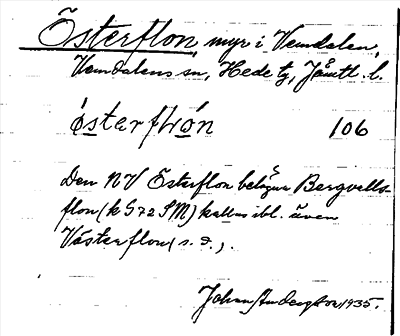 Österflon, myr i Vemdalen,
Vemdalens sn, Hede tg, Jämtl. l.
östərflωn 106
Den NV Österflon belägna Bergvalls-
flon (k 572 SM) kallas ibl. även
Västerflon (s. d.).
Johan Andersson 1935.